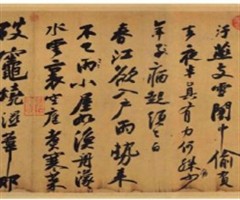 污燕支雪闇中偷負
去夜半真有力何殊少
年子病起頭已白
春江欲入戶雨勢來
不已雨小屋如漁舟濛濛
水雲裏空庖煮寒菜
破竈燒濕葦那